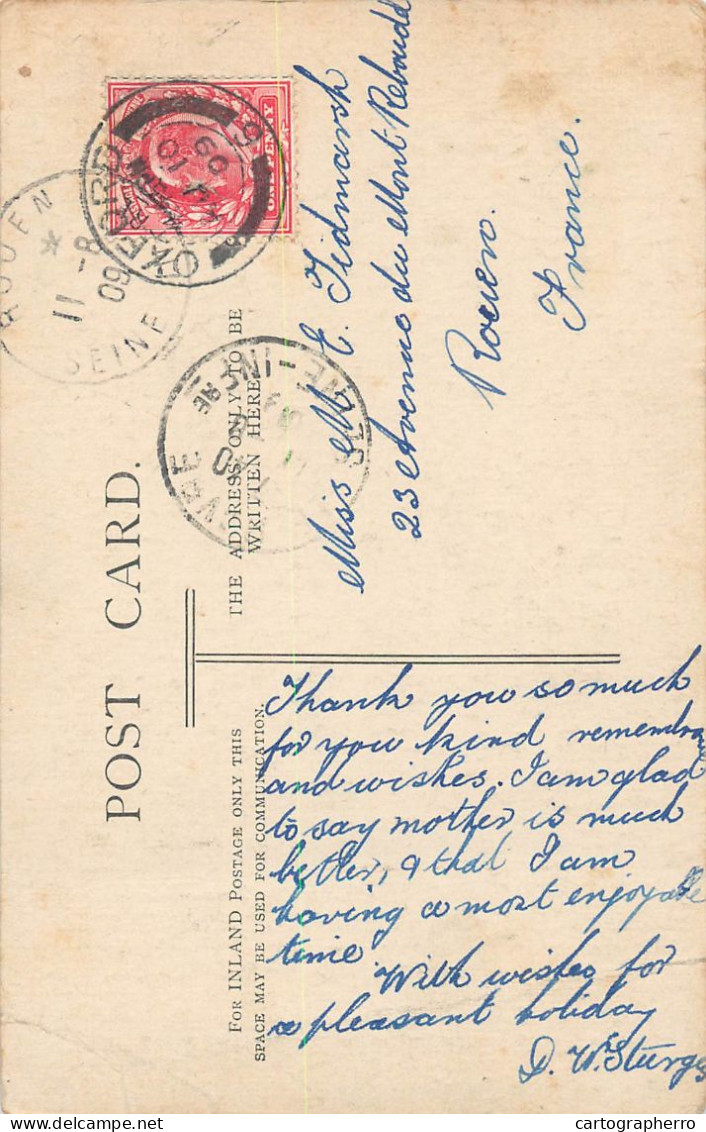 POST CARD.
THE ADDRESS ONLY TO BE
WRITTEN HERE
FOR INLAND POSTAGE ONLY THIS
SPACE MAY BE USED FOR COMMUNICATION.
ONE PENNY
OXFORD
ROUEN
11 - 8
09
SEINE
SEINE-INFRE
Miss M E. Tidmarsh
23 Avenue du Mont Reboudd
Rouen.
France.
Thank you so much
for you kind
and wishes. I am glad
to say mother is much
better, & that I am
having a most enjoyable
time.
With wishes for
a pleasant holiday
D. W. Sturges
cartographerro